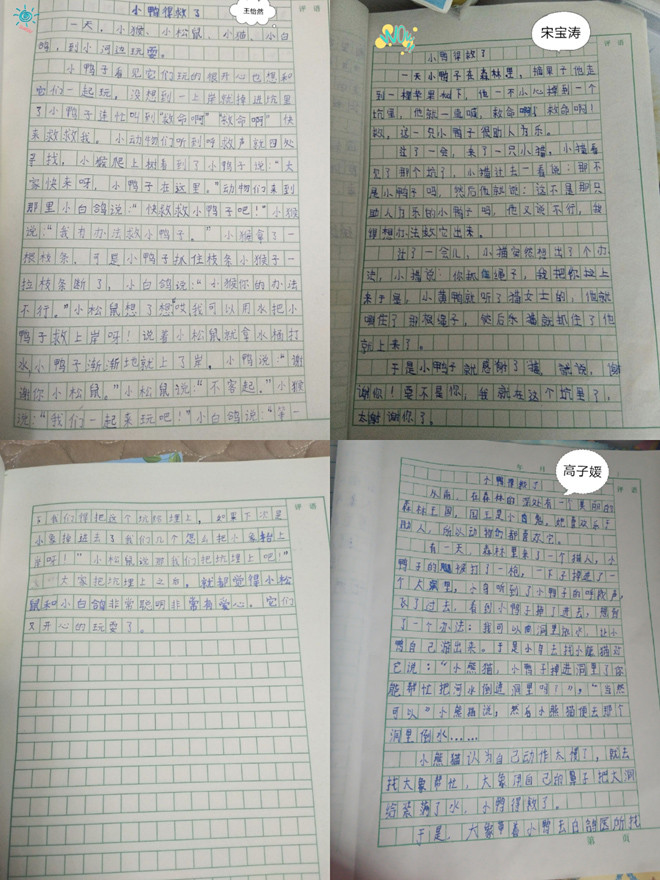 小鸭得救了
王怡然
评语
一天，小猴、小松鼠、小猫、小白
鸽，到小河边玩耍。
小鸭子看见它们玩的很开心也想和
它们一起玩，没想到一上岸就掉进坑里
了小鸭子连忙叫到"救命啊""救命啊"快
来救救我。小动物们听到呼救声就四处
寻找，小猴爬上树看到了小鸭子说"大
家快来呀，小鸭子在这里。"动物们来到
那里小白鸽说："快救救小鸭子吧！"小猴
说："我有办法救小鸭子。"小猴拿了一
根枝条，可是小鸭子抓住枝条小猴子一
拉枝条断了，小白鸽说："小猴你的办法
不行。"小松鼠想了想哎我可以用水把小
鸭子救上岸呀！说着小松鼠就拿水桶打
水小鸭子渐渐地就上了岸。小鸭说："谢
谢你小松鼠。"小松鼠说："不客起。"小猴
说："我们一起来玩吧！"小白鸽说："等一
小鸭得救了
宋宝涛
评语
一天小鸭子去森林里，摘果子他走
到一棵苹果树下，他一不小心掉到一个
坑里，他就一直喊，救命啊！救命啊！
这一只小鸭子很助人为乐。
过了一会，来了一只小猫，小猫看
见了那个坑了，小猫过去一看说：那不
是小鸭子吗，然后他就说：这不是那只
助人为乐的小鸭子吗，他又说不行，我
得想办法救它出来。
过了一会儿，小猫突然想出了个办
法，小猫说：你抓住绳子，我把你拉上
来于是，小黄鸭就听了猫女士的，他就
抓住了那根绳子，然后
就上来了。
于是小鸭子就感谢了猫，就说，谢
谢你！要不是你，我就在这个坑里了，
太谢谢你了。
评语
下我们得把这个坑给埋上，如果下次是
小象掉进去了我们几个怎么把小象抬上
岸呀！"小松鼠说那我们把坑埋上吧！"
大家把坑埋上之后。就都觉得小松
鼠和小白鸽非常聪明非常有爱心。它们
又开心的玩耍了。
每 月
高子媛
小鸭得救了
评语
从前，在森林的深处有一个美丽的
森林王国，国王是小白鸽，她喜欢乐于
助人，所以动物们都喜欢它。
有一天，森林里来了一个猎人，小
鸭子的腿被打了一枪，一下子掉进了一
个大洞里，小白听到了小鸭子的呼救声，
到了过去，看到小鸭子掉了进去，想到
了一个办法：我可以向洞里放水，让小
鸭自己游出来。于是小白去找小熊猫对
它说："小熊猫，小鸭子掉进洞里了你
能帮忙把河水倒进洞里吗？"，"当然
可以"小熊猫说，然后小熊猫便去那个
洞里倒水……
小熊猫认为自己动作太慢了，就去
找大象帮忙，大象用自己的鼻子把大洞
给装满了水，小鸭得救了。
于是，大象带着小鸭去白鸽医所找
第 页